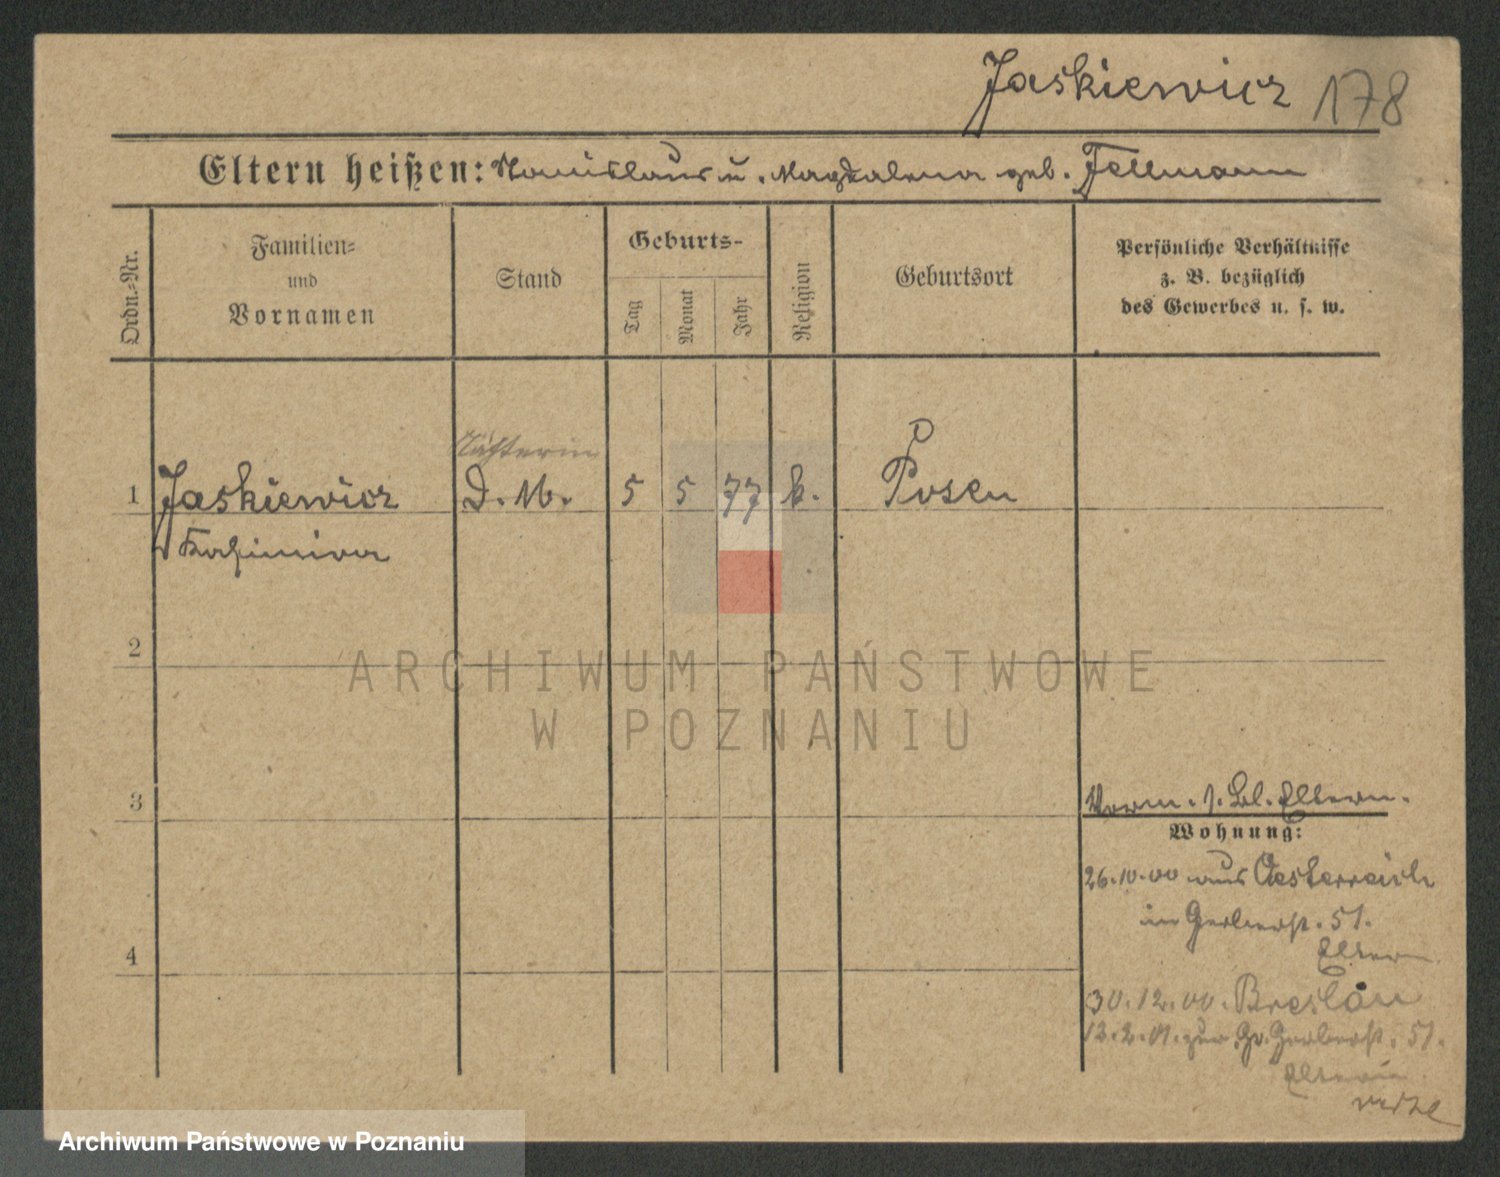 Jaskiewicz 178
Eltern heißen: Stanislaus u. Magdalena geb. Fellmann
Ordn.-Nr.
Familien-
und
Vornamen
Stand
Geburts-
Tag
Monat
Jahr
Religion
Geburtsort
Persönliche Verhältnisse
z. B. bezüglich
des Gewerbes u. s. w.
1 Jaskiewicz D. M. 5 5 77 k. Posen
Kasimira
2
3
4
Vorm. s. Bl. Eltern.
Wohnung:
26.10.00 aus Oesterreich
in Gerberst. 51.
Eltern.
30.12.00. Breslau
12.2.01. zur Gr. Gerberst. 51.
Eltern
ARCHIWUM PAŃSTWOWE
W POZNANIU
Archiwum Państwowe w Poznaniu